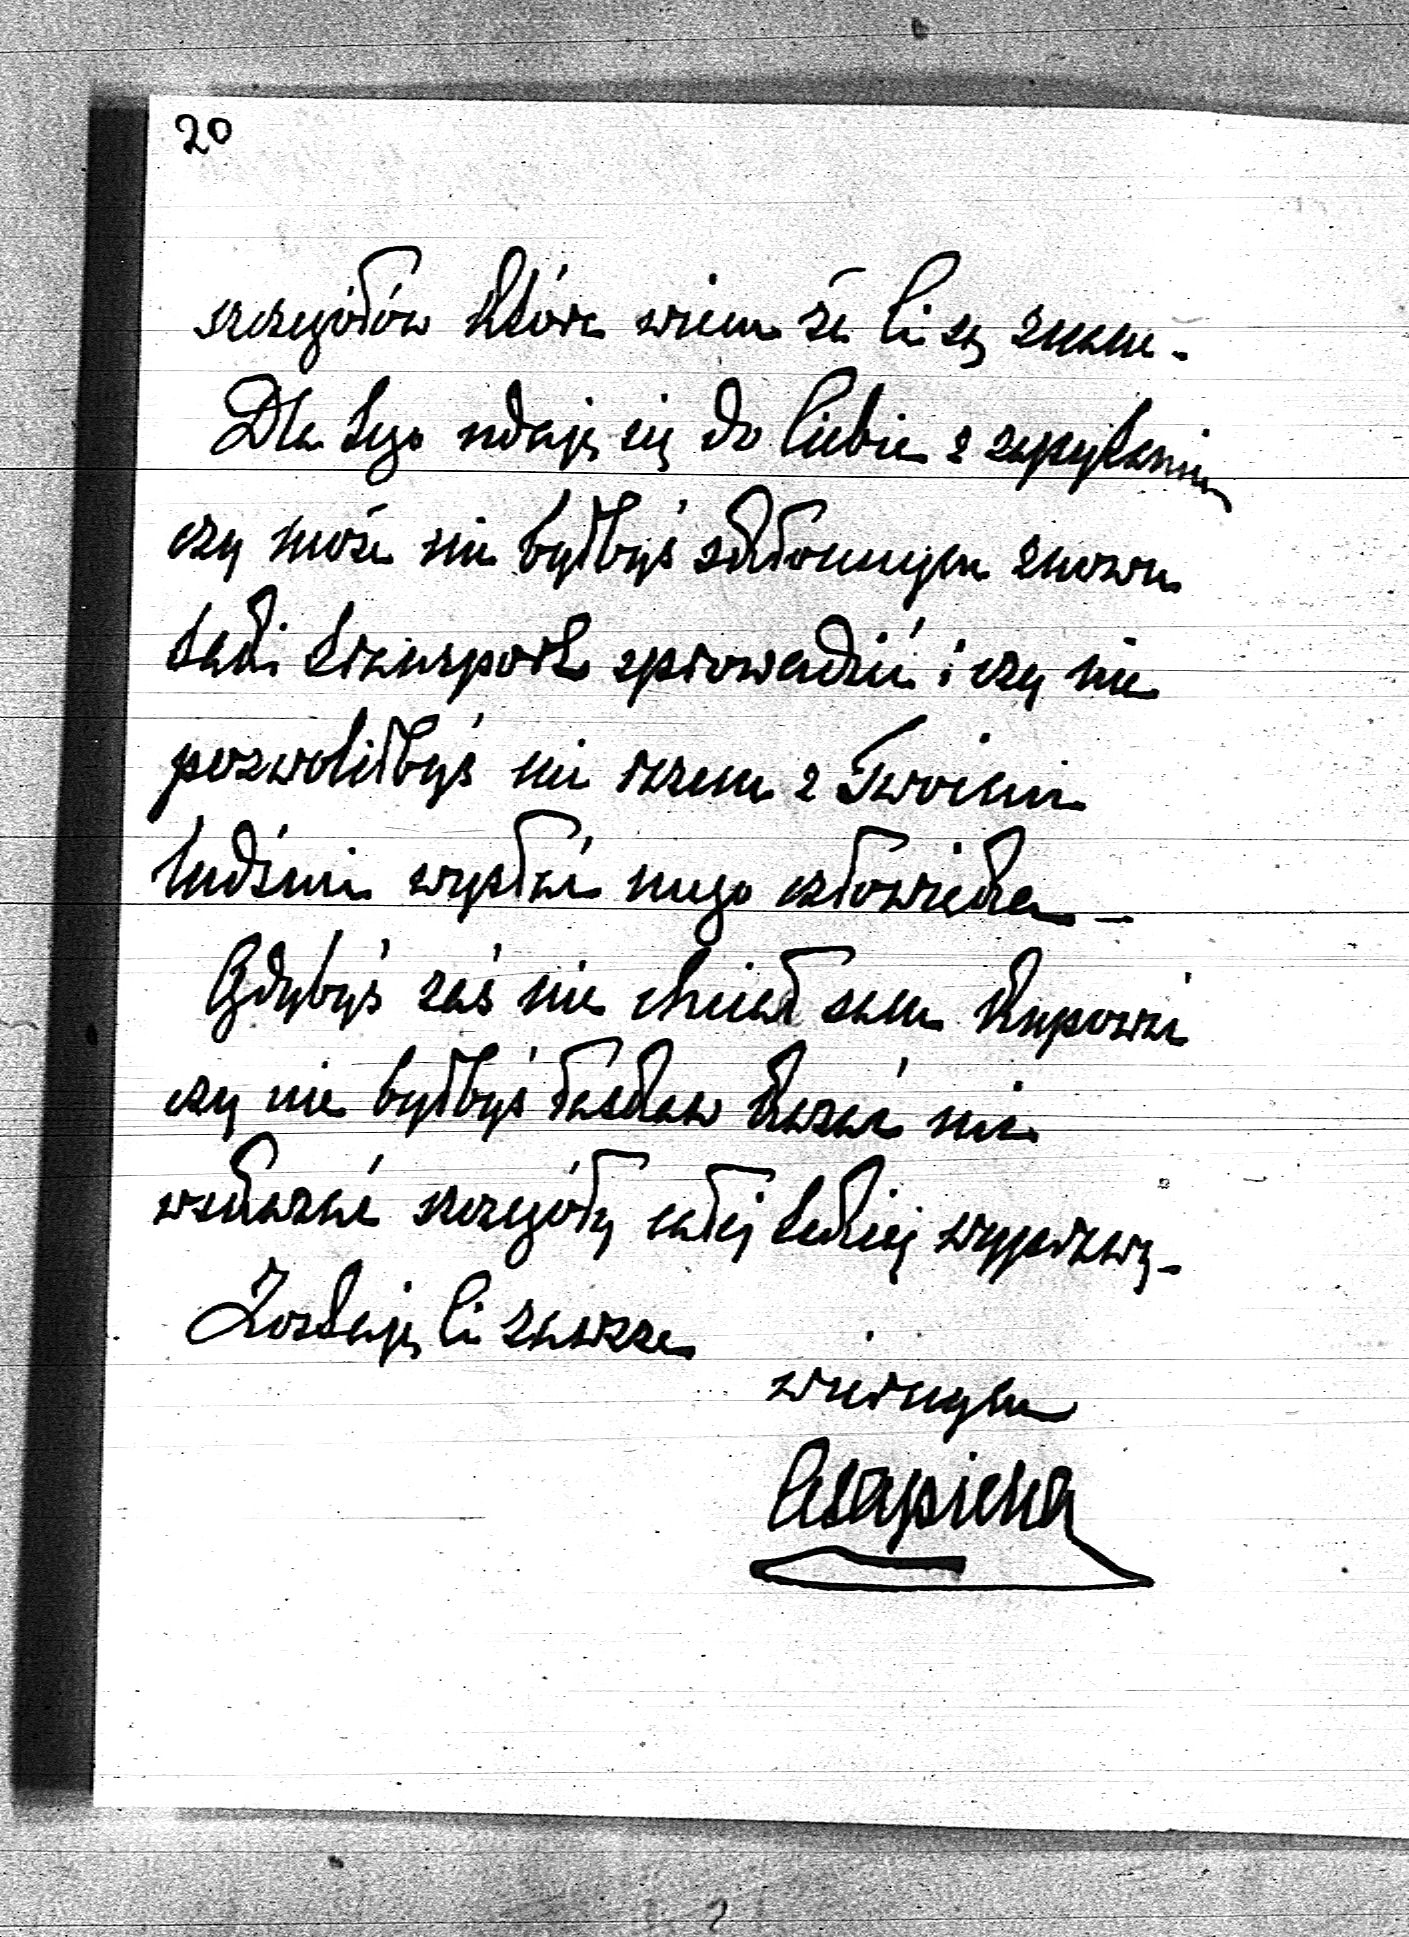 20
szczegółów które wiem że Ci są znane.
Dla tego udaję się do Ciebie z zapytaniem
czy może nie byłbyś skłonnym znowu
taki transport sprowadzić i czy nie
pozwoliłbyś mi razem z Twoimi
ludźmi wysłać mego człowieka –
Gdybyś zaś nie chciał sam kupować
czy nie byłbyś łaskaw kazać mi
wskazać szczegóły całej takiej wyprawy –
Zostaję Ci zawsze
wiernym
Sapieha